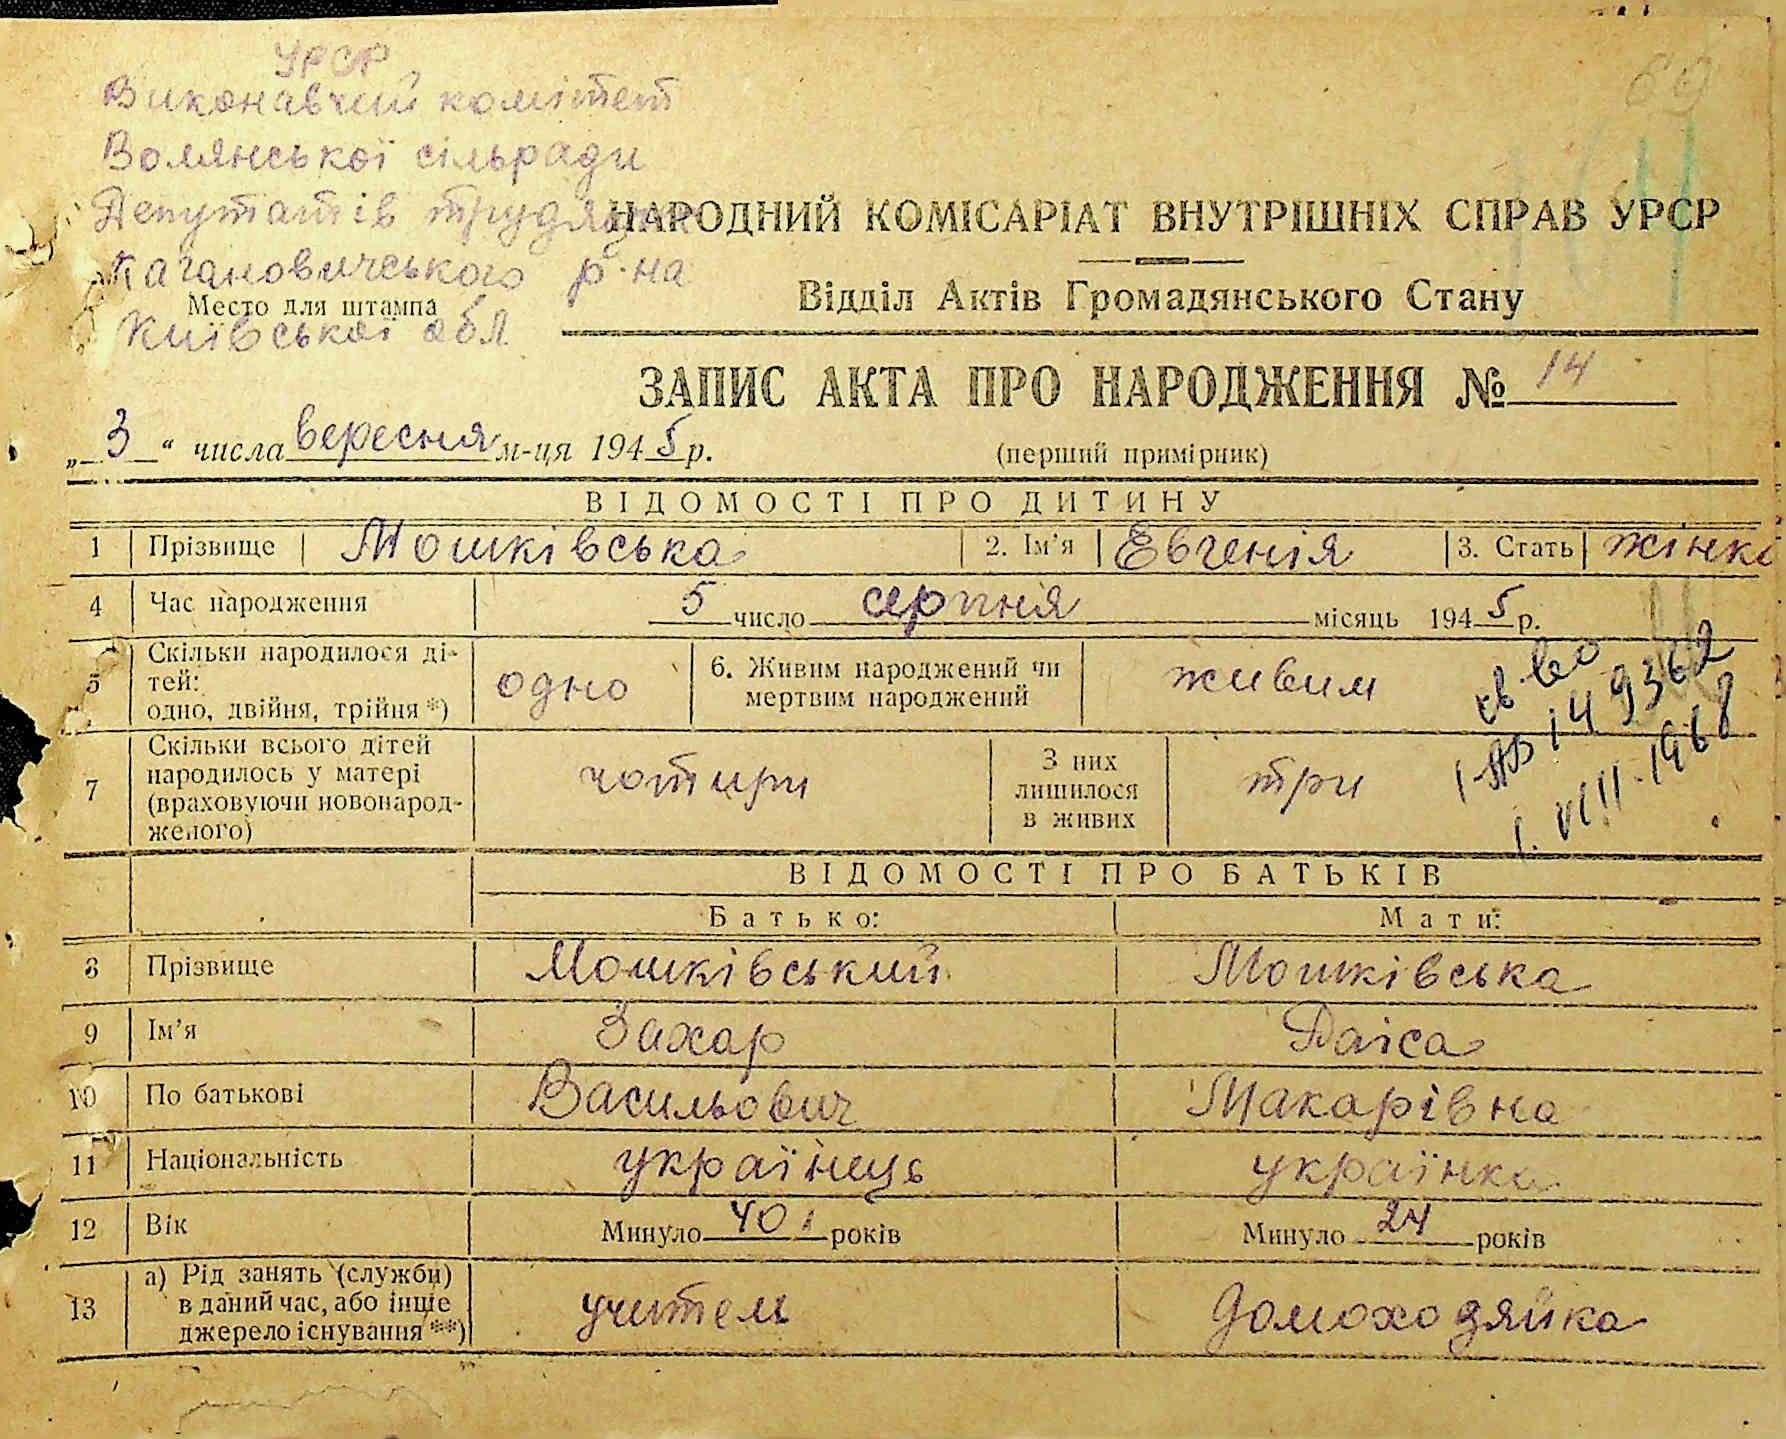 УРСР
Виконавчий комітет
Волянської сільради
Депутатів трудящих
Кагановичського р-на
Місто для штампа
Київської обл
60
НАРОДНИЙ КОМІСАРІАТ ВНУТРІШНІХ СПРАВ УРСР
Відділ Актів Громадянського Стану
ЗАПИС АКТА ПРО НАРОДЖЕННЯ № 14
„ 3 “ числа вересня м-ця 1945 р.
(перший примірник)
ВІДОМОСТІ ПРО ДИТИНУ
1 Прізвище Мошківська 2. Ім'я Евгенія 3. Стать жінка
4 Час народження 5 число серпня місяць 1945 р.
5 Скільки народилося ді-
тей:
одно, двійня, трійня *) одно 6. Живим народжений чи
мертвим народжений живим
св-во
149362
1.VIII.1968
7 Скільки всього дітей
народилось у матері
(враховуючи новонарод-
женого) чотири З них
лишилося
в живих три
ВІДОМОСТІ ПРО БАТЬКІВ
Батько: Мати:
8 Прізвище Мошківський Мошківська
9 Ім'я Захар Раїса
10 По батькові Васильович Макарівна
11 Національність українець українка
12 Вік Минуло 40 років Минуло 24 років
13 а) Рід занять (служби)
в даний час, або інше
джерело існування **) учитель домоходяйка